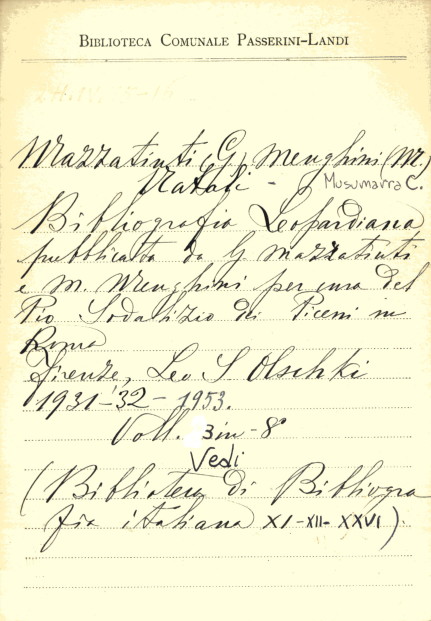 BIBLIOTECA COMUNALE PASSERINI-LANDI
Mazzatinti (G) Menghini (M.)
Natali - Musumarra C.
Bibliografia Leopardiana
pubblicata da G Mazzatinti
e M. Menghini per cura del
Pio Sodalizio dei Piceni in
Roma
Firenze, Leo S Olschki
1931-32-1953.
Voll. 3 in-8º
Vedi
(Biblioteca di Bibliogra
fia italiana XI-XII-XXVI).